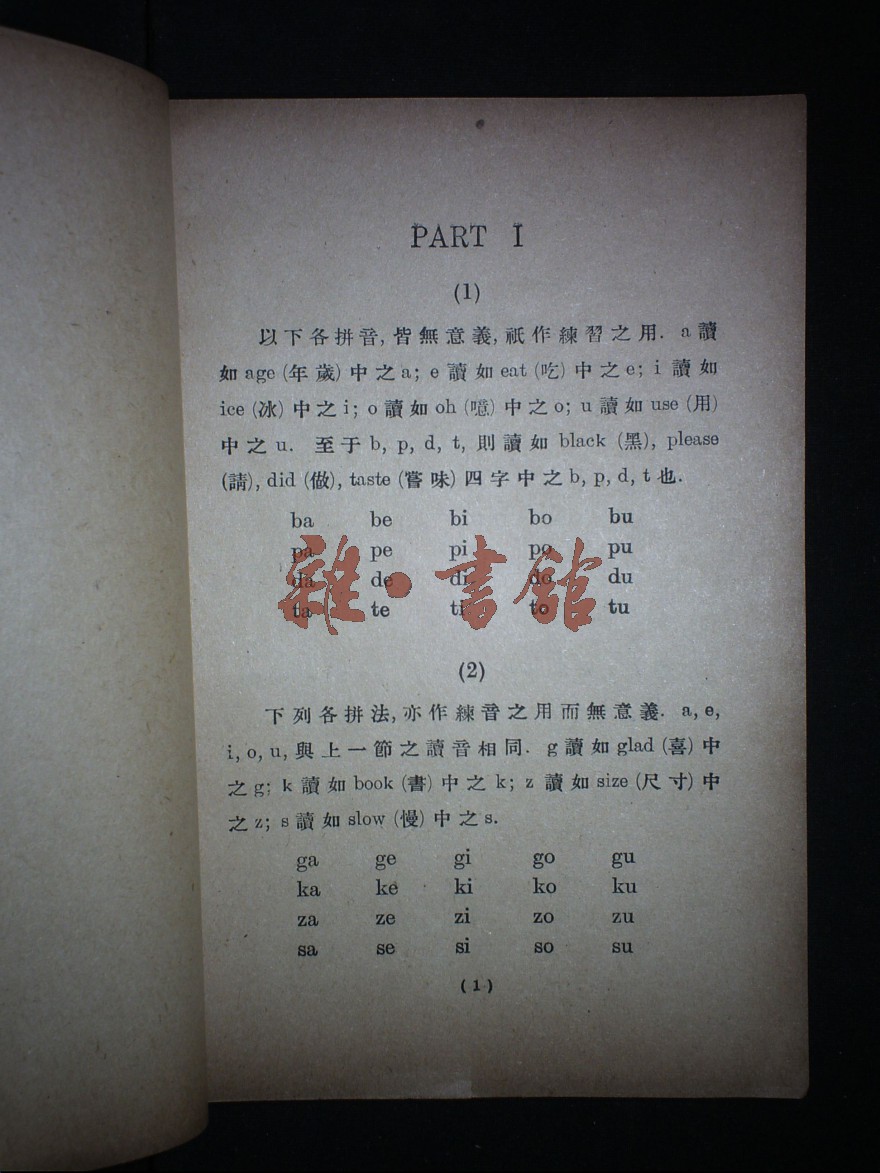 PART I
(1)
以下各拼音, 皆無意義, 祇作練習之用. a 讀
如 age (年歲) 中之 a; e 讀如 eat (吃) 中之 e; i 讀如
ice (冰) 中之 i; o 讀如 oh (噫) 中之 o; u 讀如 use (用)
中之 u. 至于 b, p, d, t, 則讀如 black (黑), please
(請), did (做), taste (嘗味) 四字中之 b, p, d, t 也.
ba be bi bo bu
pa pe pi po pu
da de di do du
ta te ti to tu
雜·書館
(2)
下列各拼法, 亦作練音之用而無意義. a, e,
i, o, u, 與上一節之讀音相同. g 讀如 glad (喜) 中
之 g; k 讀如 book (書) 中之 k; z 讀如 size (尺寸) 中
之 z; s 讀如 slow (慢) 中之 s.
ga ge gi go gu
ka ke ki ko ku
za ze zi zo zu
sa se si so su
(1)